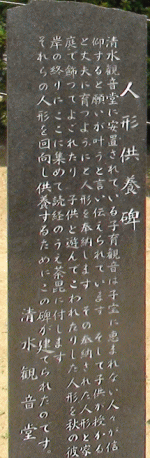 人形供養碑
清水観音堂に安置されている子育観音は子宝に恵まれない人々が信
仰すると願いが叶うと言い伝えられています そして子供が授かる
と丈夫に育つようにと人形を奉納します その奉納された人形や家
庭で飾ってよろこばれたり子供と遊んでこわれたりした人形を秋の彼
岸の終りにここに集めて読経のうえ荼毘に付します
それらの人形を回向し供養するためにこの碑が建てられたのです。
清水観音堂